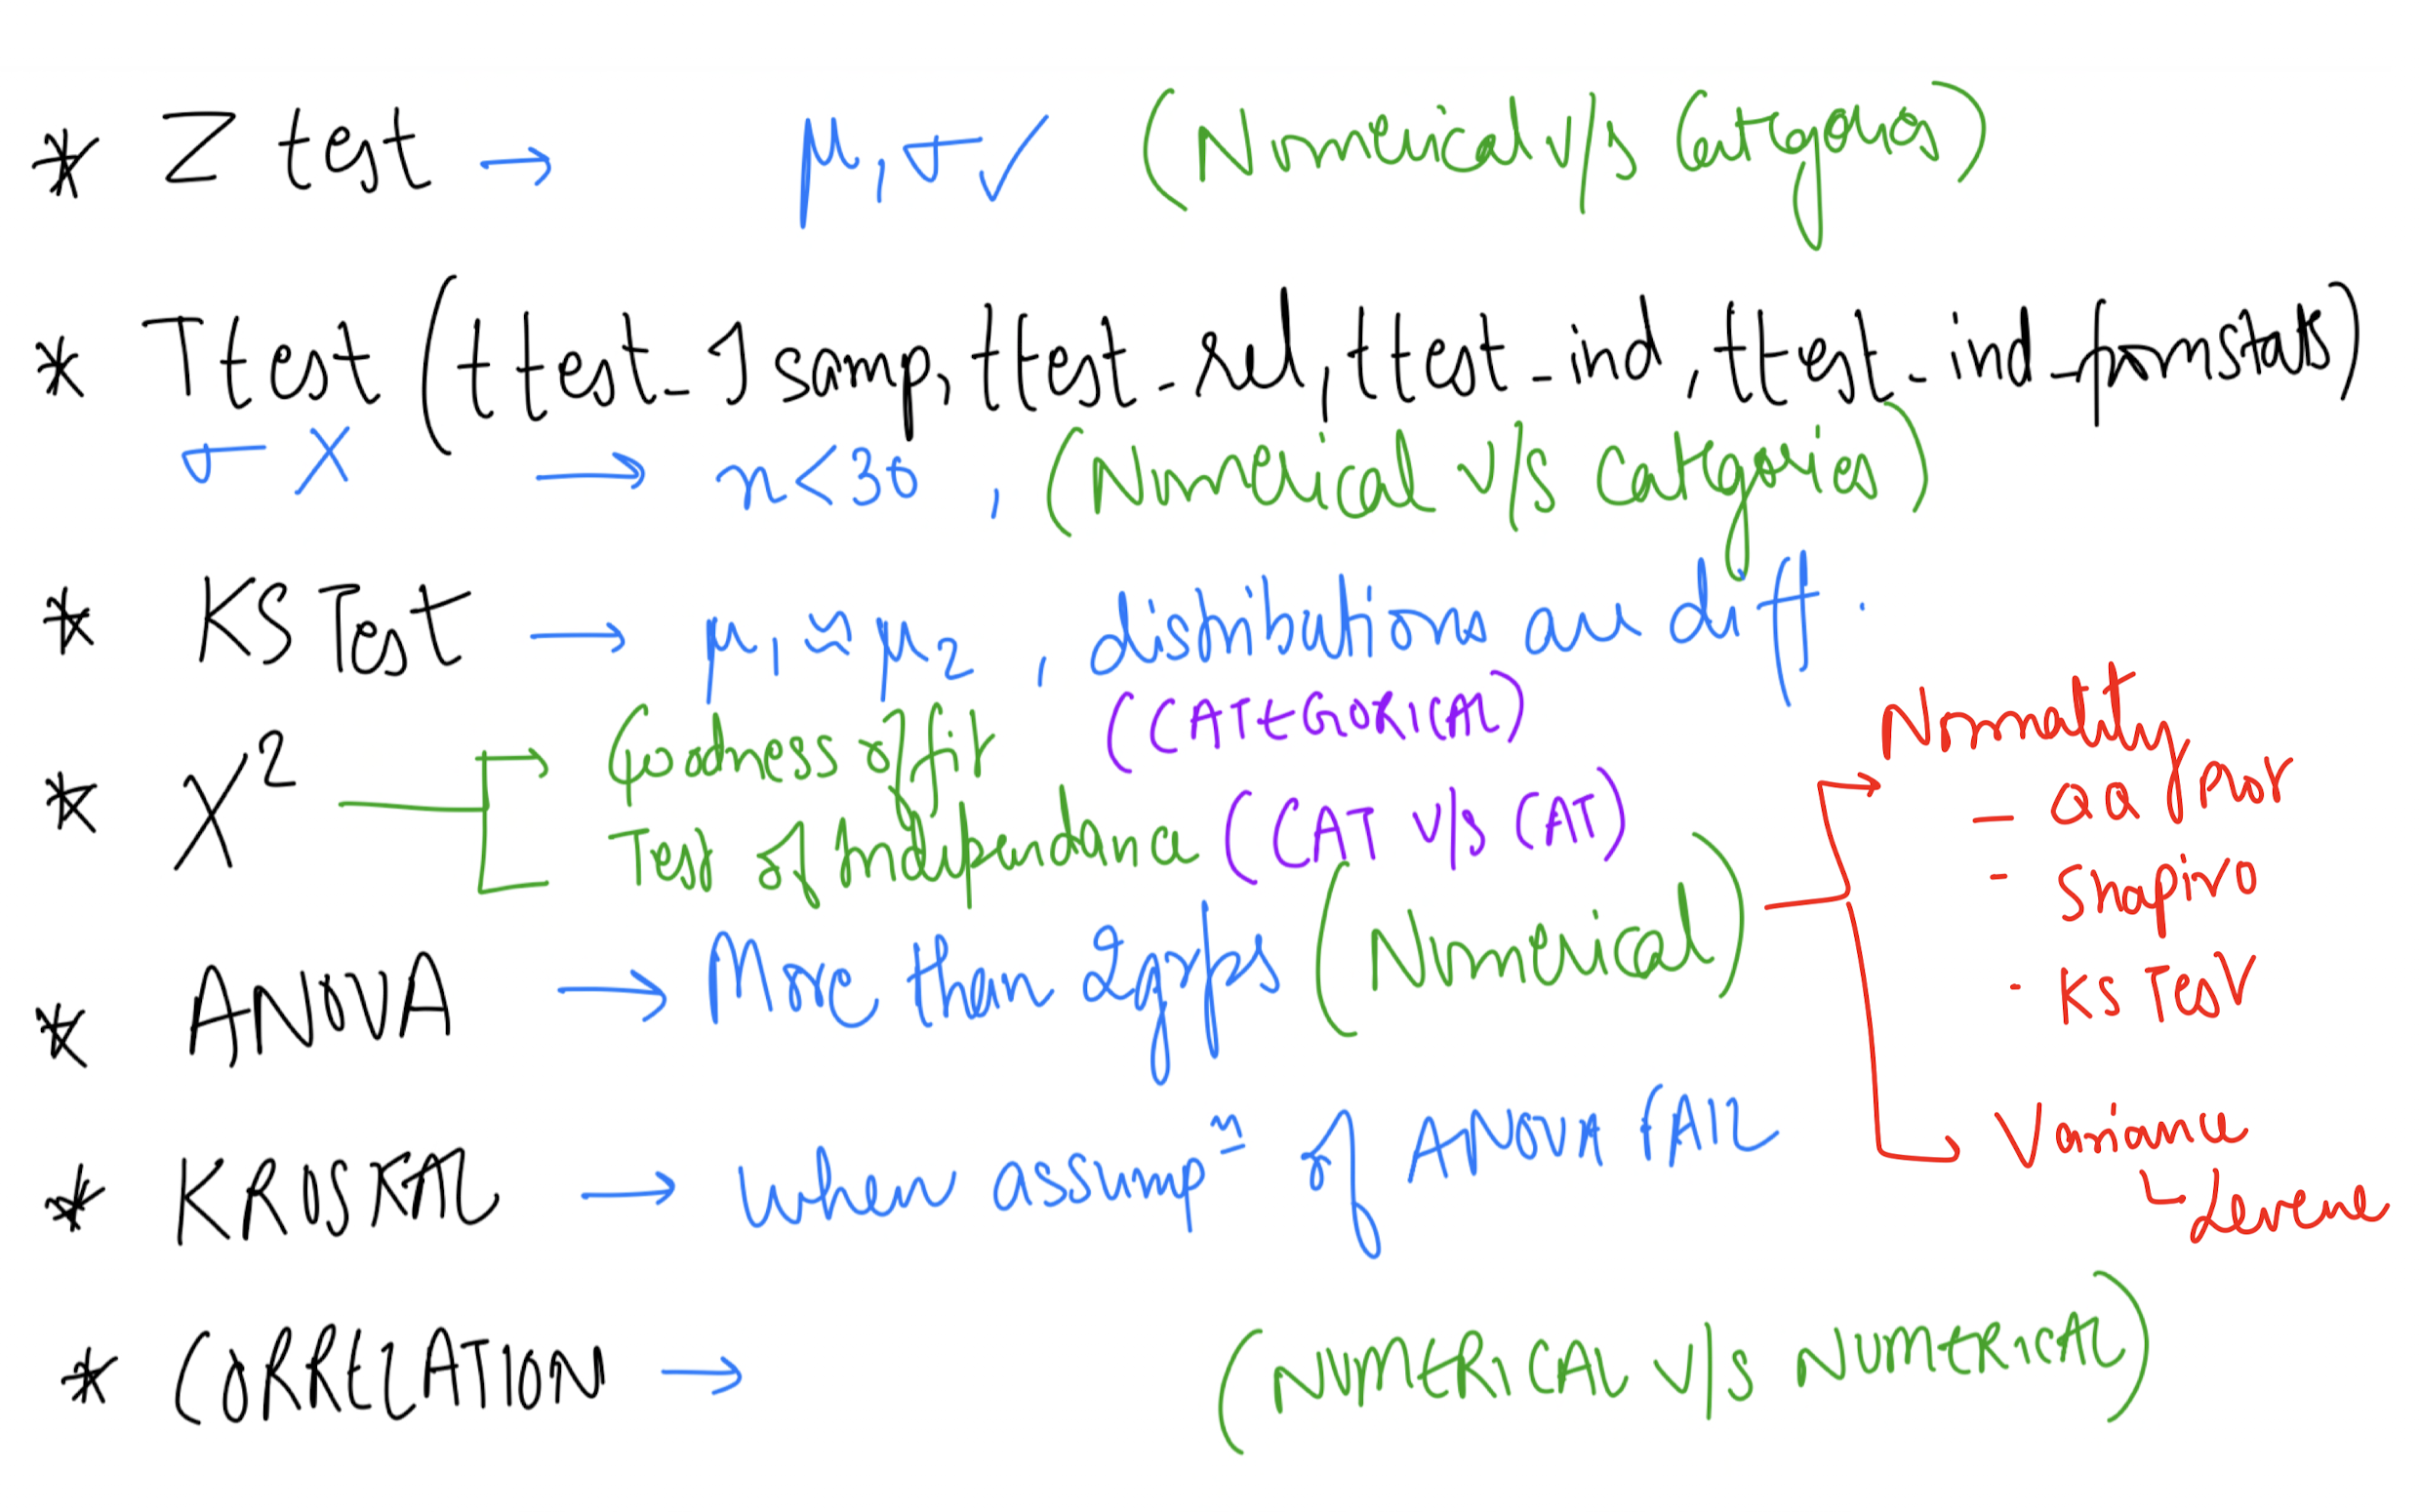 * Z test → μ, σ ✓ (Numerical v/s Categories)
* Ttest (ttest_1samp, ttest_rel, ttest_ind, ttest_ind_fromstats)
σ X → n<30, (Numerical v/s Categories)
* KS Test → μ1 ≈ μ2, distributions are diff.
* X² → Goodness of fit (CATEGORICAL)
Test of Independence (CAT v/s CAT)
* ANOVA → More than 2 grps (Numerical)
→ Normality
— QQ plot
- Shapiro
- KS Test
→ Variance
↳ Levene
* KRUSKAL → when assumpⁿ of ANOVA FAIL
* CORRELATION → (NUMERICAL v/s NUMERICAL)